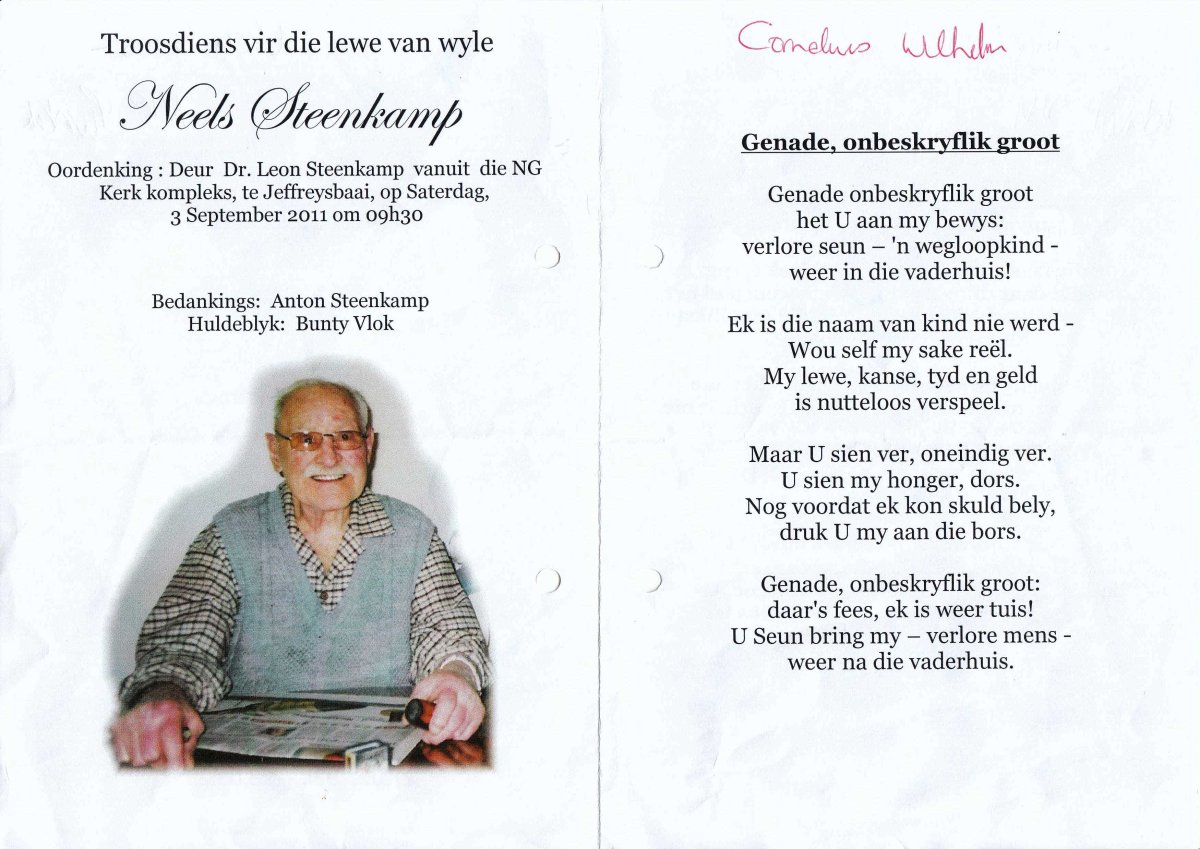 Troosdiens vir die lewe van wyle
Neels Steenkamp
Oordenking : Deur Dr. Leon Steenkamp vanuit die NG
Kerk kompleks, te Jeffreysbaai, op Saterdag,
3 September 2011 om 09h30
Bedankings: Anton Steenkamp
Huldeblyk: Bunty Vlok
Cornelius Wilhelm
Genade, onbeskryflik groot
Genade onbeskryflik groot
het U aan my bewys:
verlore seun – 'n wegloopkind -
weer in die vaderhuis!
Ek is die naam van kind nie werd -
Wou self my sake reël.
My lewe, kanse, tyd en geld
is nutteloos verspeel.
Maar U sien ver, oneindig ver.
U sien my honger, dors.
Nog voordat ek kon skuld bely,
druk U my aan die bors.
Genade, onbeskryflik groot:
daar's fees, ek is weer tuis!
U Seun bring my – verlore mens -
weer na die vaderhuis.